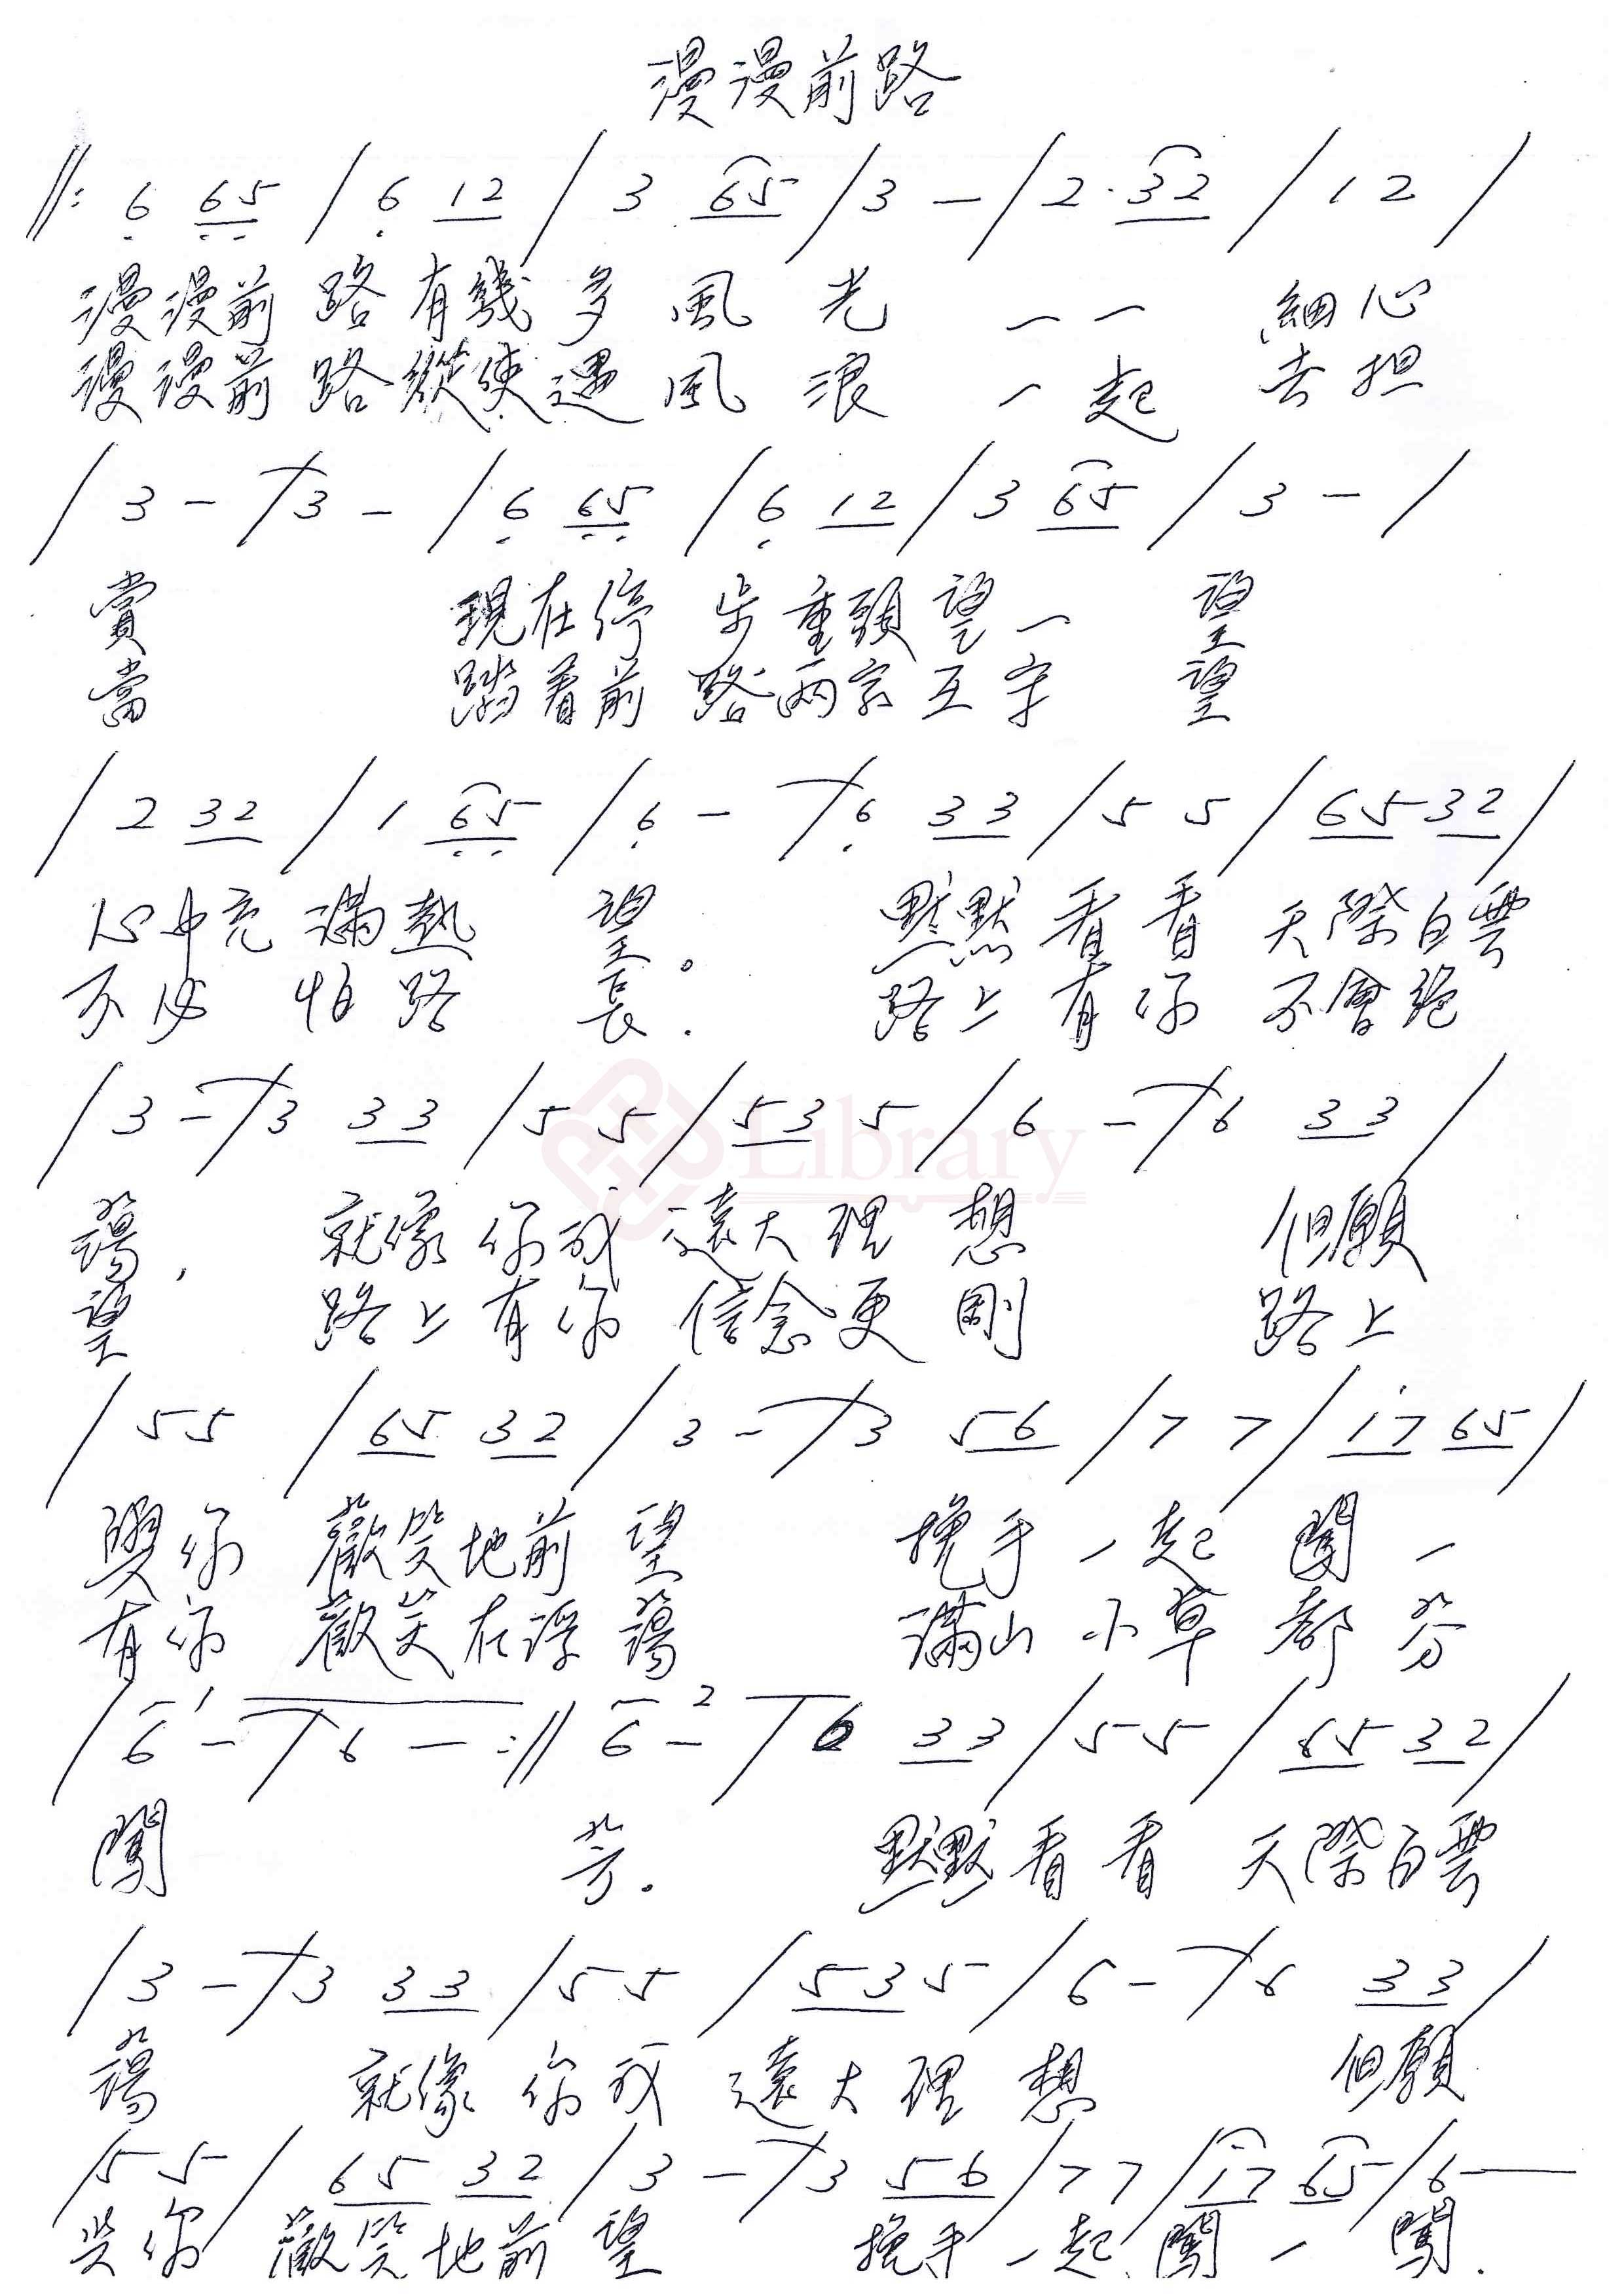 漫漫前路
‖: 6 65 / 6 12 / 3 65 / 3 - / 2· 32 / 1 2 /
漫漫前路有幾多風光 一一 細心
漫漫前路縱使遇風浪 一起 去担
/ 3 - / 3 - / 6 65 / 6 12 / 3 65 / 3 - /
賞 現在停步重頭望一望
當 踏着前路兩家互守望
/ 2 32 / 1 65 / 6 - / 6 33 / 5 5 / 65 32 /
心中充滿熱望。 默默看看 天際白雲
不必怕路長. 路上有你 不會絕
/ 3 - / 3 33 / 5 5 / 53 5 / 6 - / 6 33 /
蕩, 就像你我遠大理想 但願
望 路上有你信念更剛 路上
/ 5 5 / 65 32 / 3 - / 3 56 / 7 7 / i7 65 /
與你 歡笑地前望 挽手一起 闖一
有你 歡笑在浮蕩 滿山小草都芬
/ 6 1 - / 6 - :‖ 6 2 - / 6 33 / 5 5 / 65 32 /
闖 芳. 默默看看 天際白雲
/ 3 - / 3 33 / 5 5 / 53 5 / 6 - / 6 33 /
蕩 就像你我遠大理想 但願
/ 5 5 / 65 32 / 3 - / 3 56 / 7 7 / i7 65 / 6 —
與你 歡笑地前望 挽手一起闖一闖.
Library